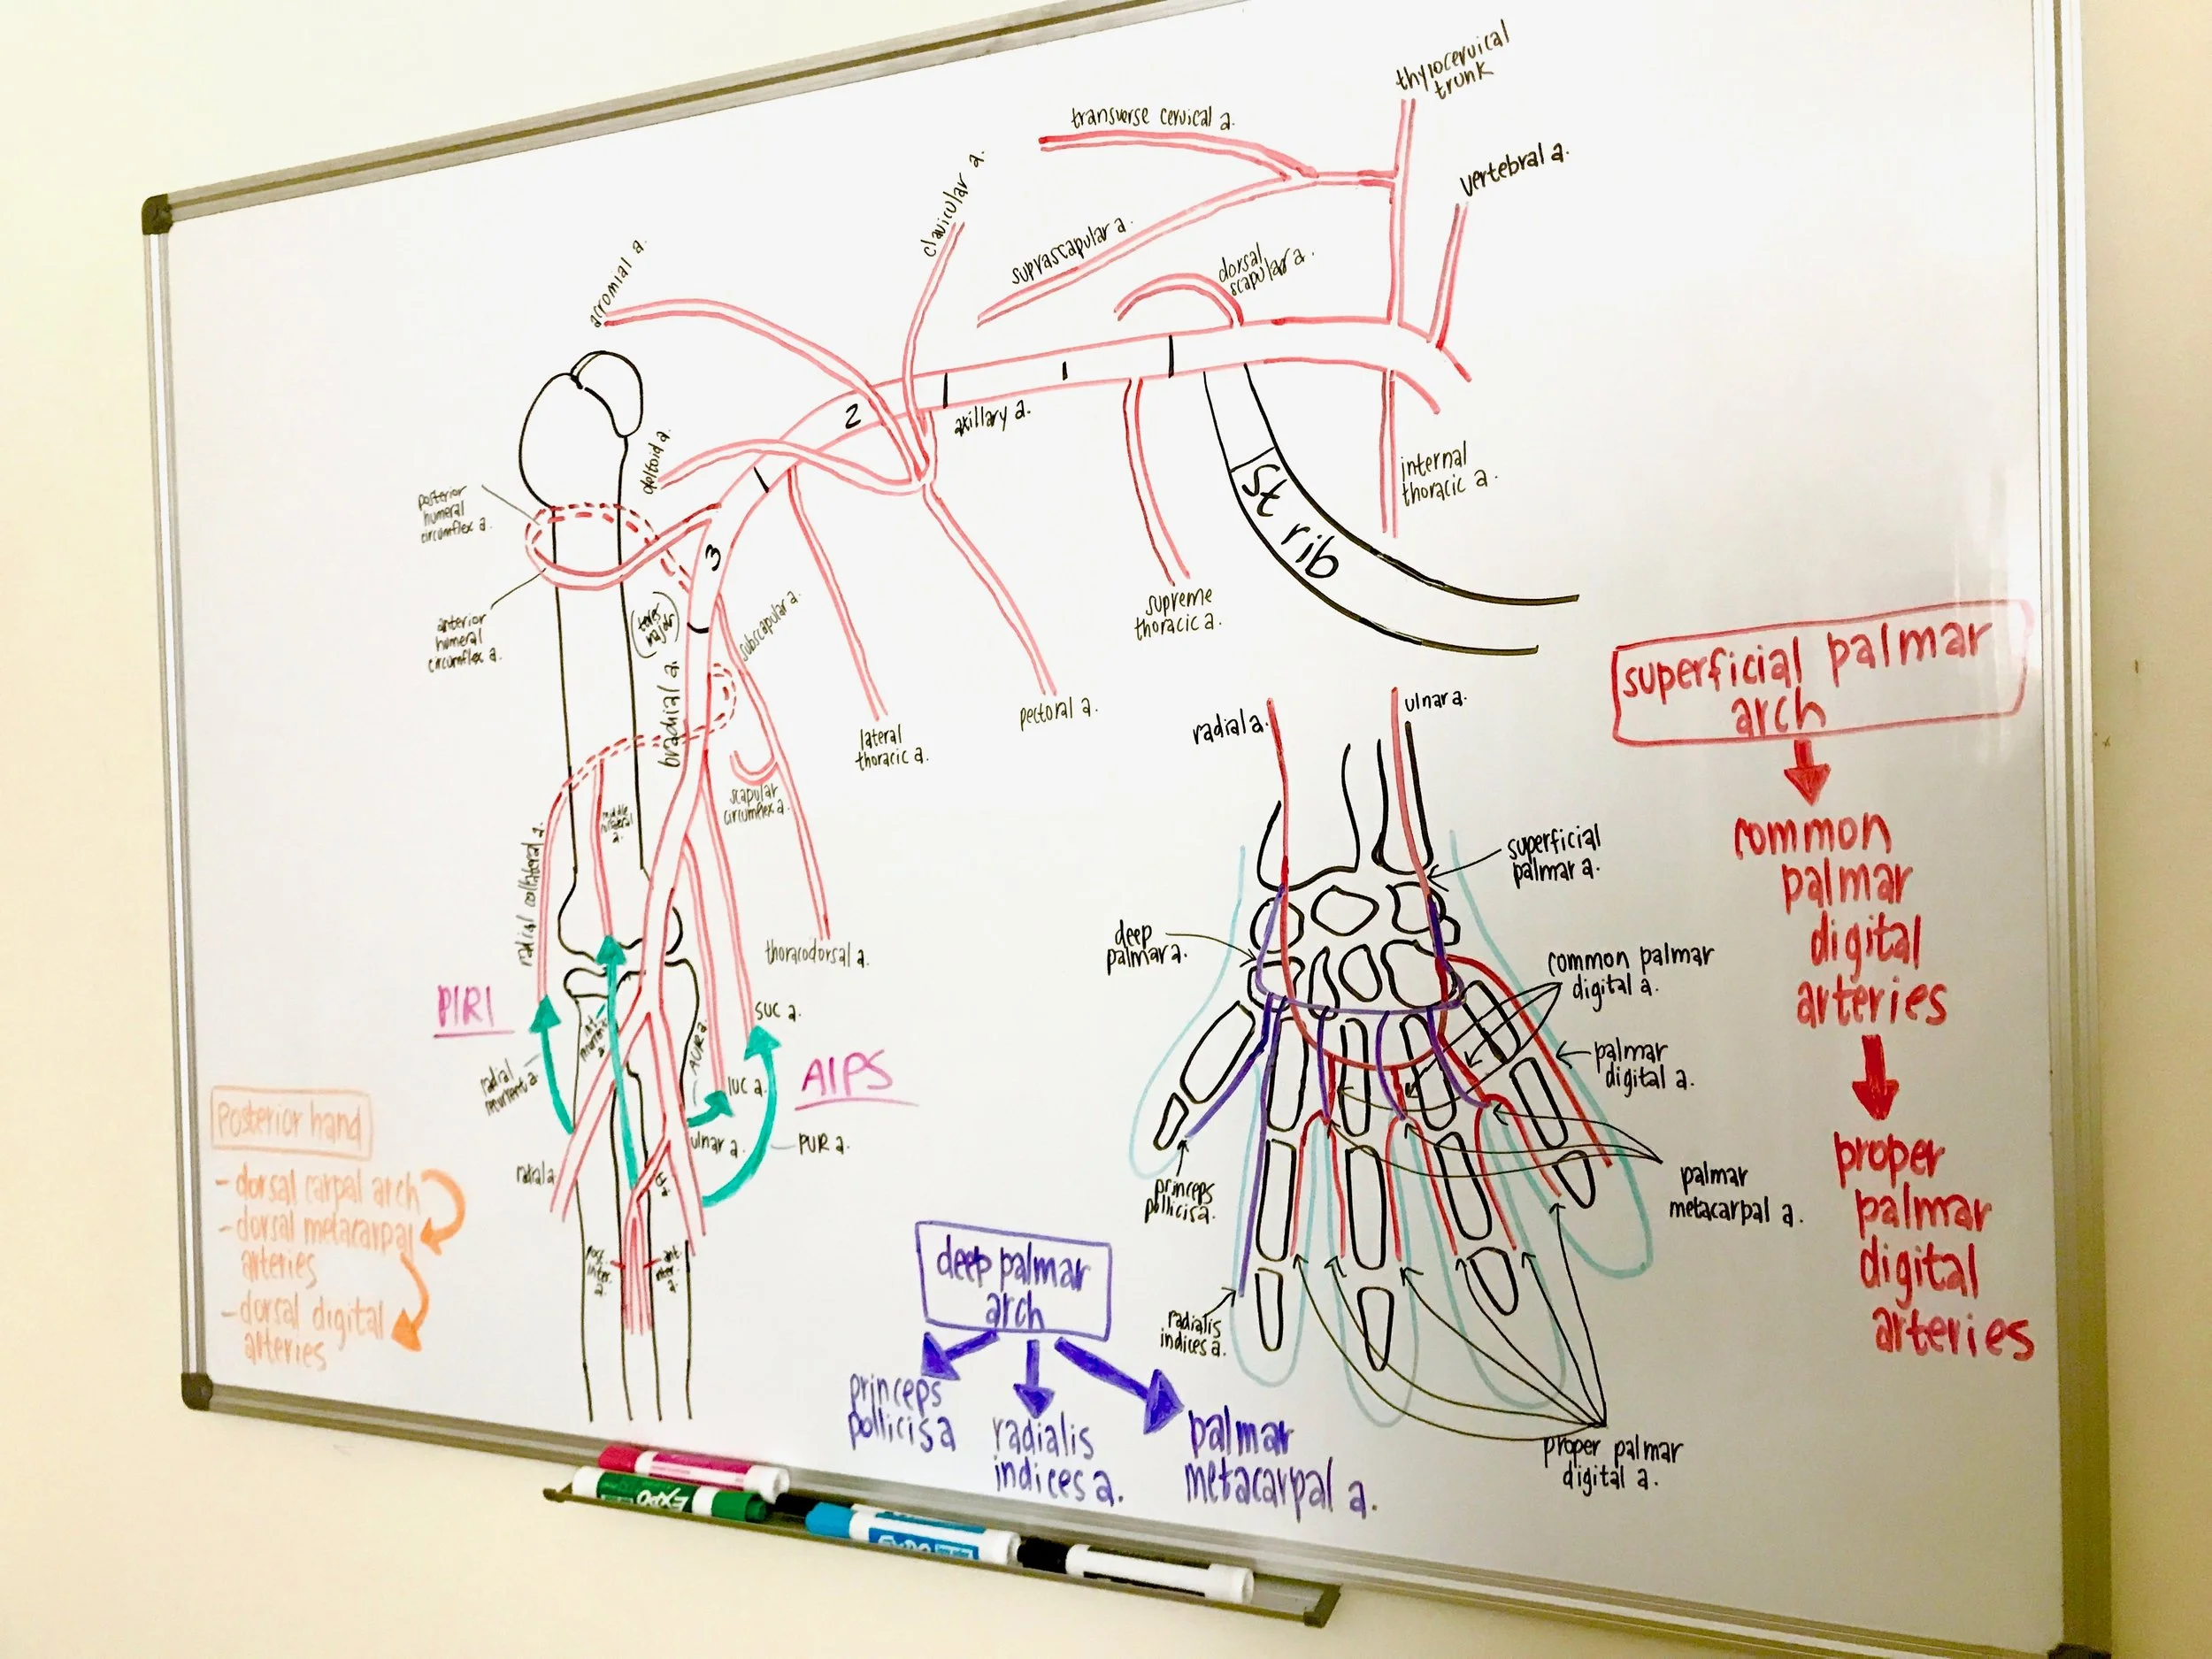 thyrocervical
trunk
transverse cervical a.
vertebral a.
clavicular a.
suprascapular a.
dorsal
scapular a.
acromial a.
1
2
axillary a.
deltoid a.
internal
thoracic a.
1st rib
posterior
humeral
circumflex a.
3
anterior
humeral
circumflex a.
(teres
major)
subscapular a.
supreme
thoracic a.
brachial a.
pectoral a.
lateral
thoracic a.
scapular
circumflex a.
middle
collateral
a.
radial collateral a.
thoracodorsal a.
PIRI
SUC a.
AUR a.
IUC a.
AIPS
radial
recurrent a.
ulnar a.
PUR a.
radial a.
post.
inter.
a.
ant.
inter.
a.
Posterior hand
- dorsal carpal arch
- dorsal metacarpal
arteries
- dorsal digital
arteries
radial a.
ulnar a.
superficial
palmar a.
deep
palmar a.
common palmar
digital a.
palmar
digital a.
palmar
metacarpal a.
princeps
pollicis a.
radialis
indices a.
proper palmar
digital a.
deep palmar
arch
princeps
pollicis a
radialis
indices a.
palmar
metacarpal a.
superficial palmar
arch
common
palmar
digital
arteries
proper
palmar
digital
arteries
EXPO
EXPO